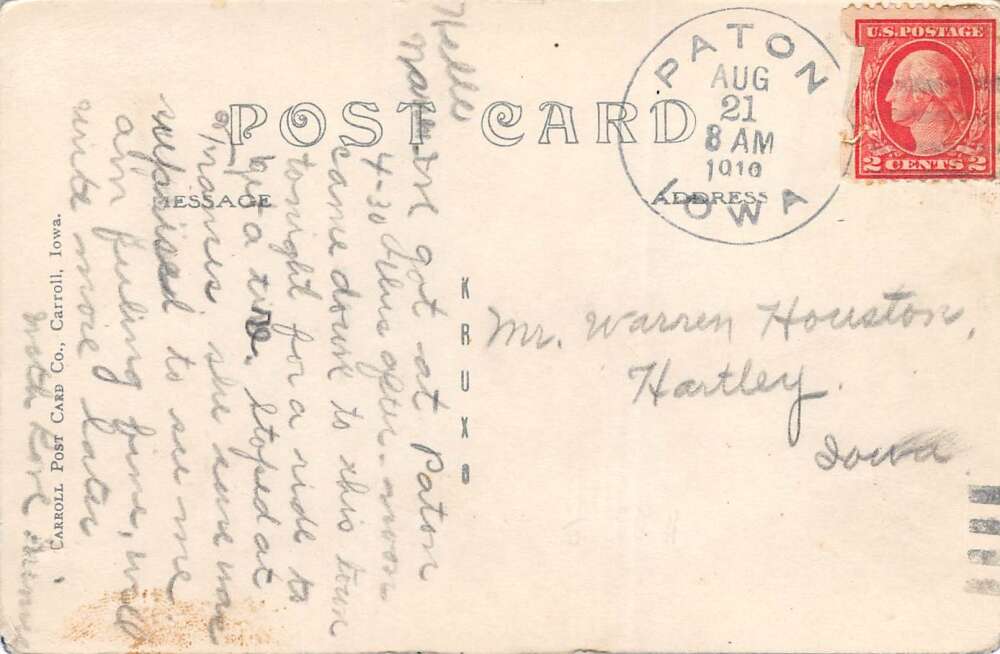 POST CARD
MESSAGE
ADDRESS
PATON
AUG
21
8 AM
IOWA
U.S. POSTAGE
2 CENTS 2
Hello
got at Paton
4-30 this after-noon
came down to this town
tonight for a ride to
get a tire. Stoped at
she sure was
suprised to see me
am feeling fine, will
write more later
with Love
KRUXO
Mr. Warren Houston,
Hartley.
Iowa
CARROLL POST CARD CO., CARROLL, IOWA.